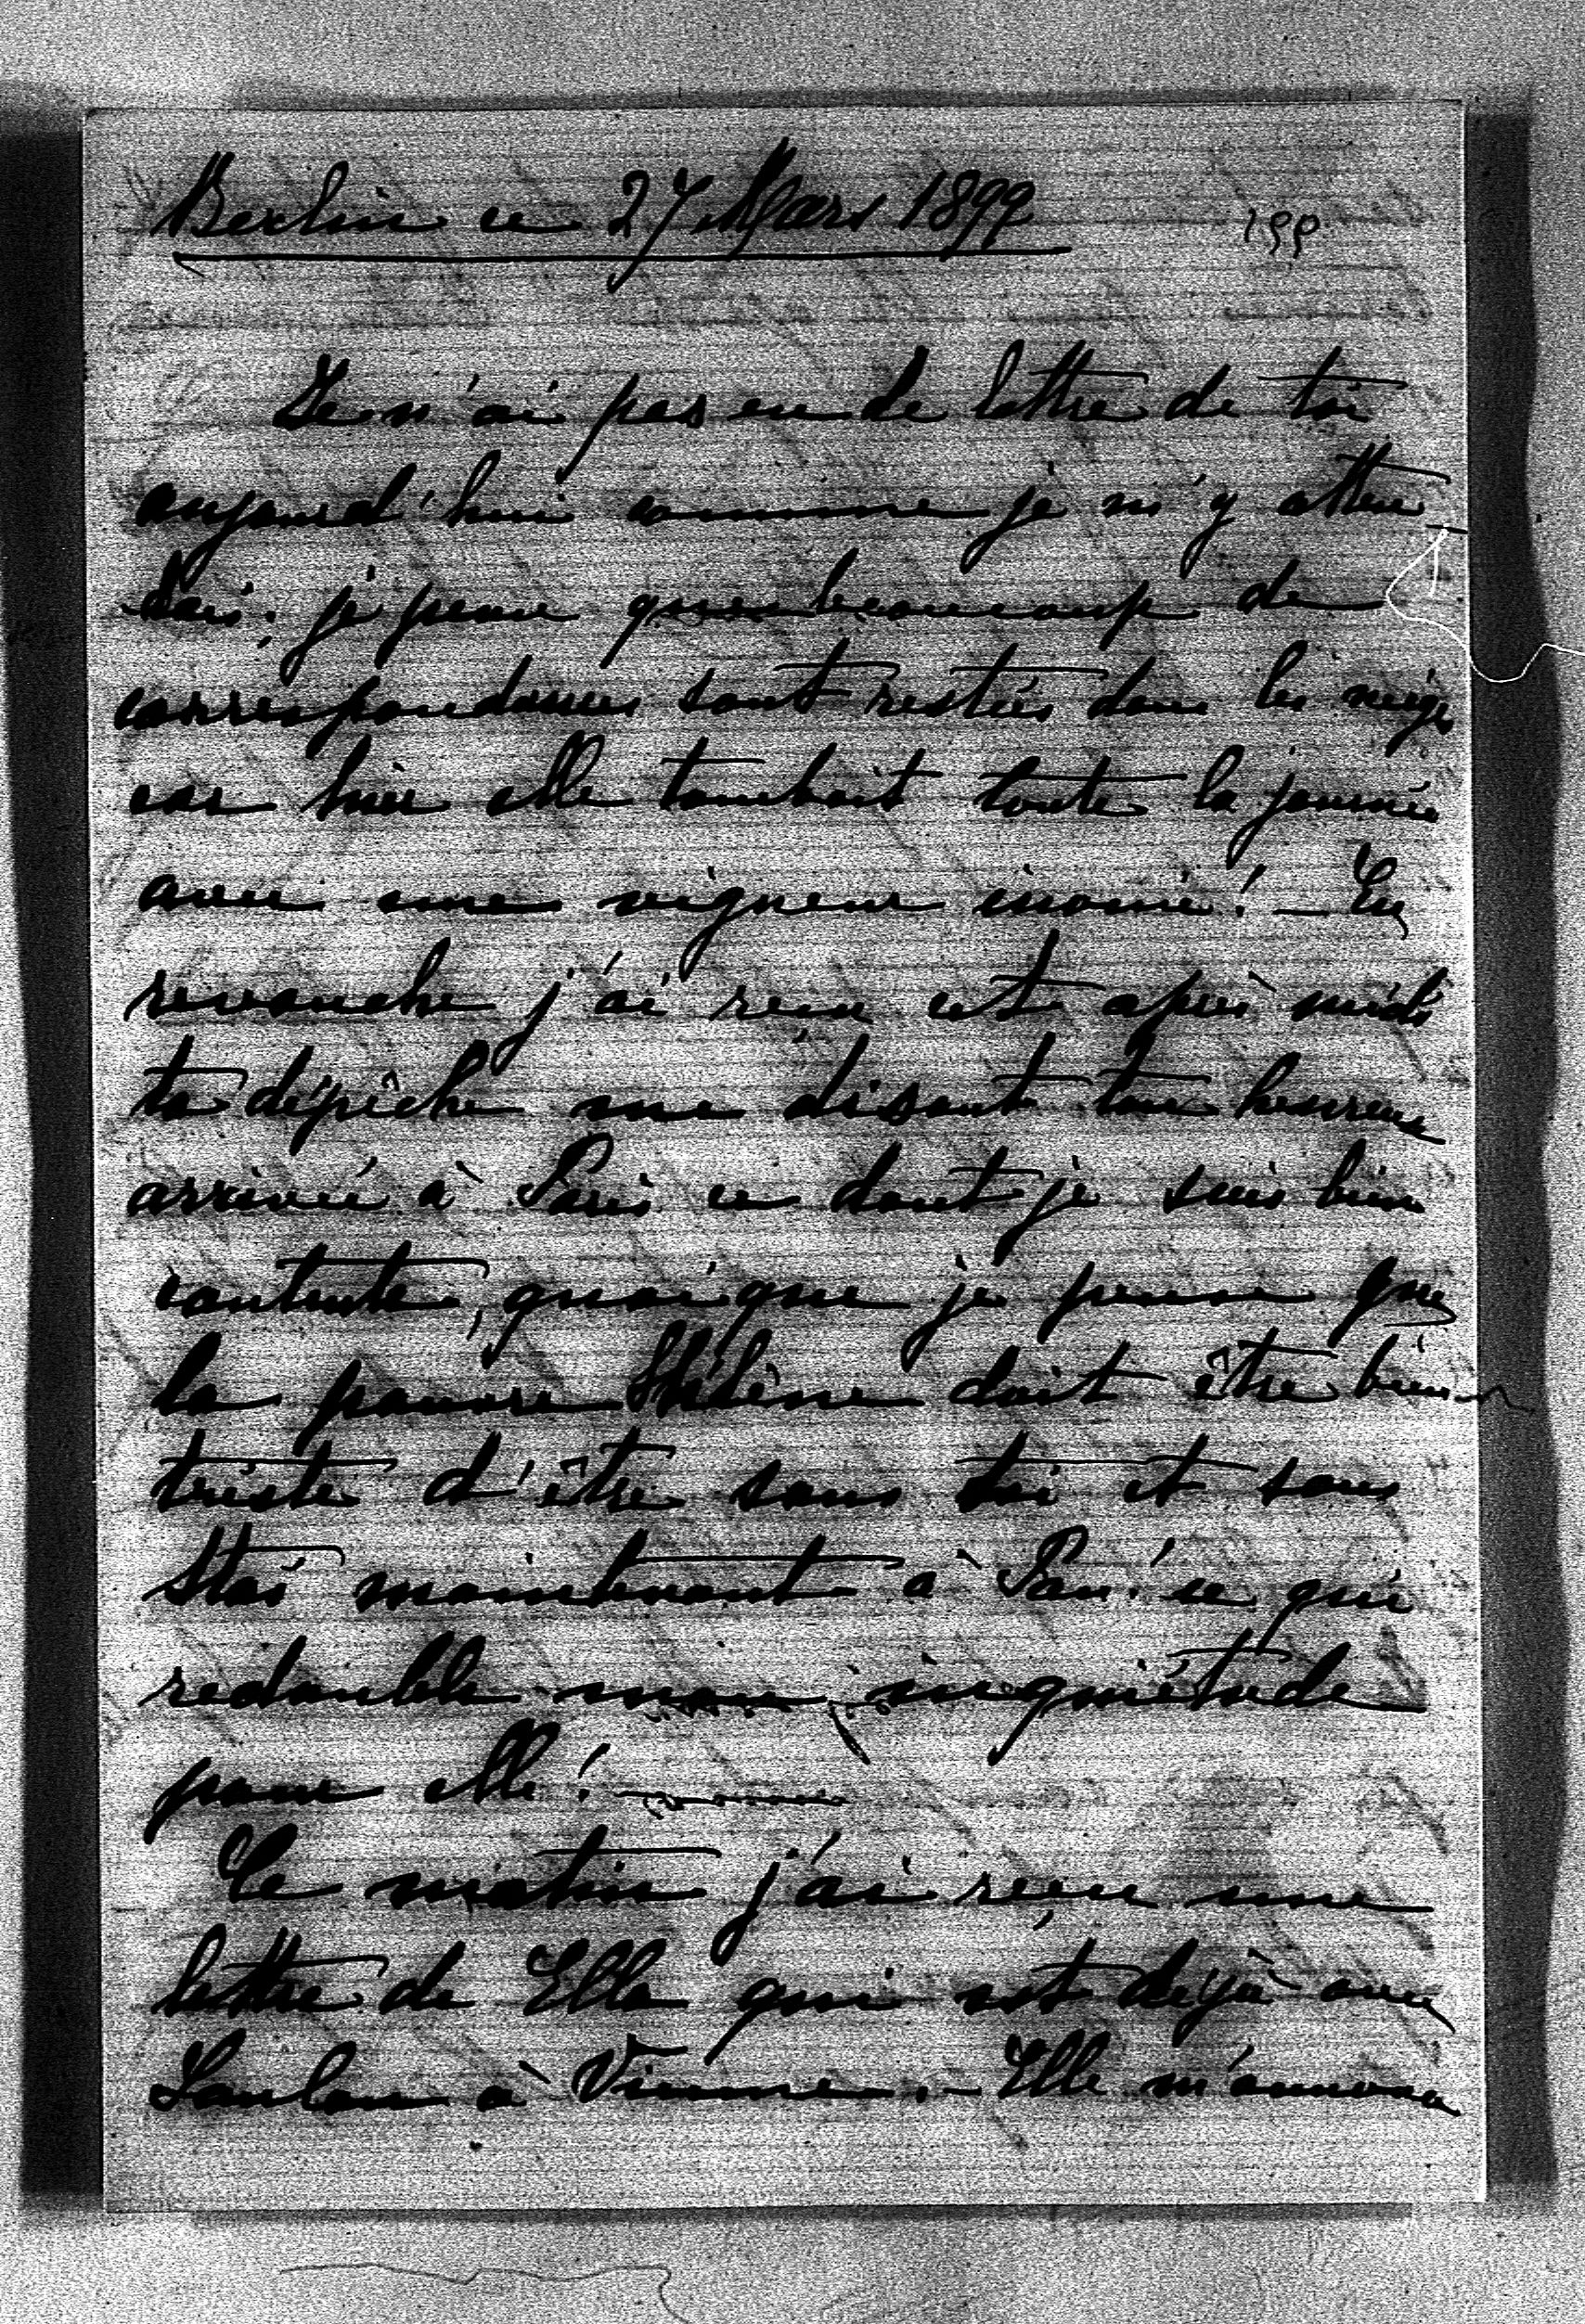 Berlin ce 27 Mars 1899
199
Je n'ai pas eu de lettre de toi
aujourd'hui comme je m'y atten-
dais; je pense que beaucoup de
correspondances sont restées dans les neiges
car hier elle tombait toute la journée
avec une vigueur inouie! — En
revanche j'ai reçu cet après midi
ta dépêche me disant ton heureuse
arrivée à Paris ce dont je suis bien
contente, quoique je pense que
la pauvre Hélène doit être bien
triste d'être sans toi et sans
maintenant à Pau! ce qui
redouble mon inquiétude
pour elle! —
Ce matin j'ai reçu une
lettre de Ella qui est déjà avec
Loulou à Vienne. — Elle m'annonce